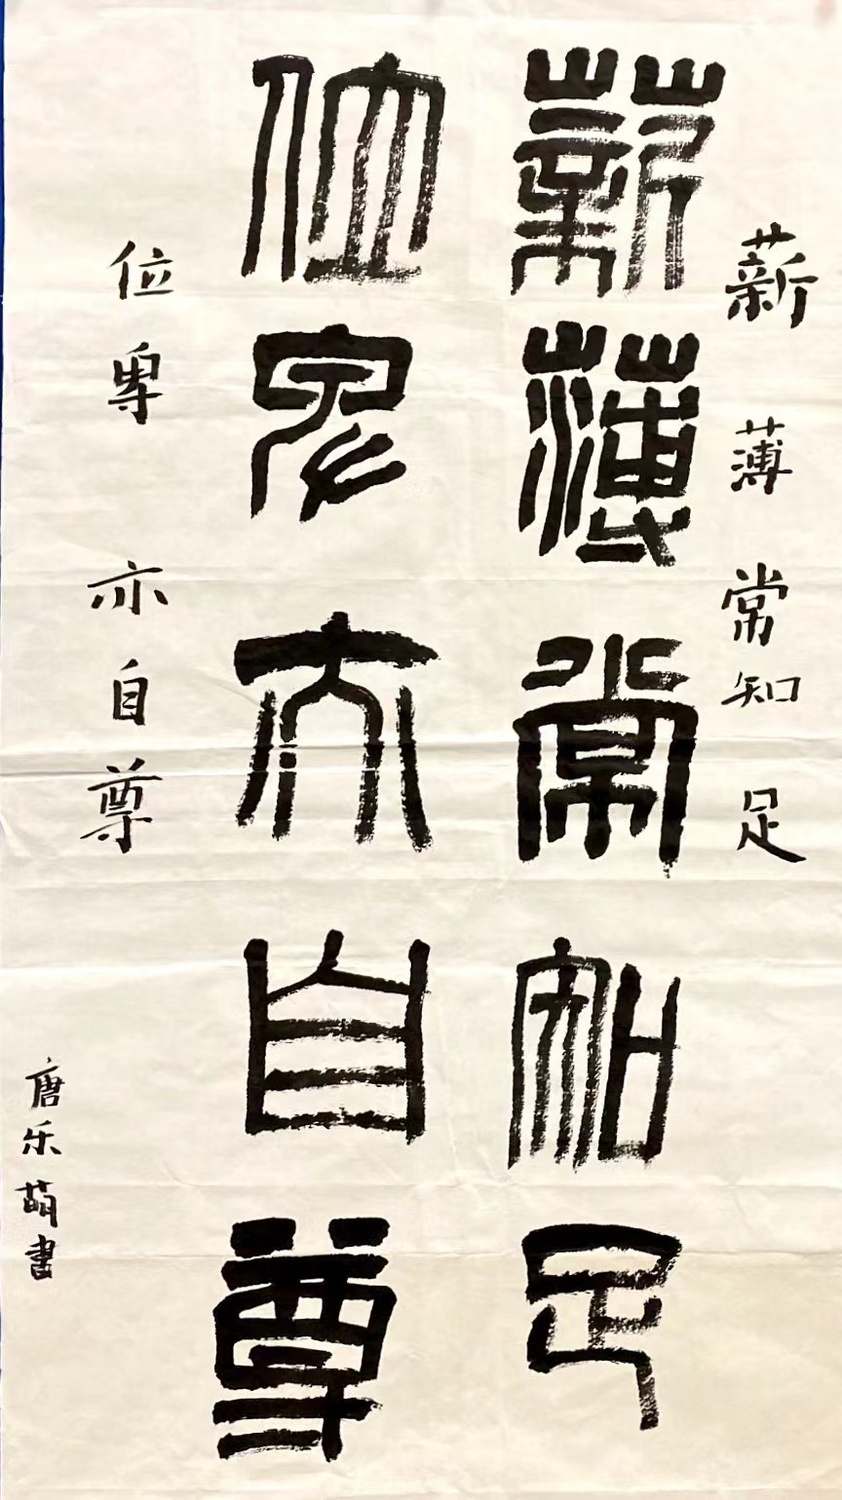 薪薄常知足
薪薄常知足
位卑亦自尊
位卑亦自尊
唐乐萌書